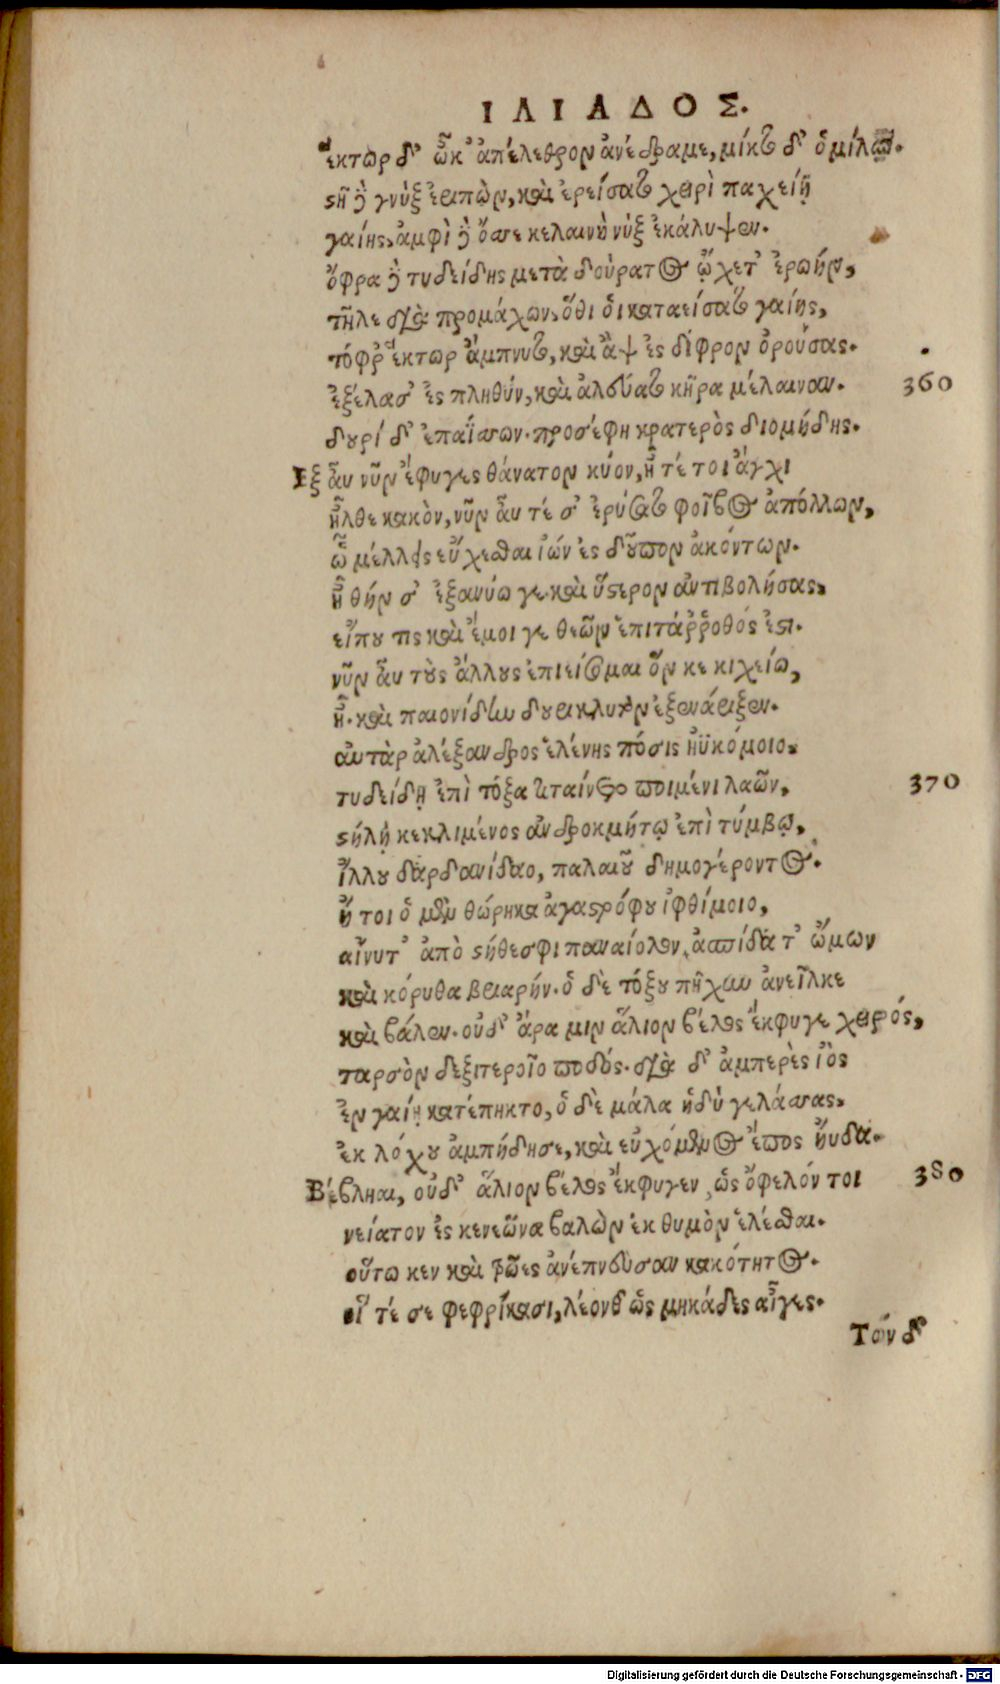 ΙΛΙΑΔΟΣ.
ἕκτωρ δ' ὦκ' ἀπέλεθρον ἀνέδραμε, μίκτο δ' ὁμίλῳ.
στῆ δὲ γνὺξ ἐριπὼν, καὶ ἐρείσατο χειρὶ παχείῃ
γαίης. ἀμφὶ δὲ ὄσσε κελαινὴ νὺξ ἐκάλυψεν.
ὄφρα δὲ τυδείδης μετὰ δούρατος ᾤχετ' ἐρωὴν,
τῆλε διὰ προμάχων, ὅθι ὁι καταείσατο γαίης,
τόφρ' ἕκτωρ ἄμπνυτο, καὶ ἂψ ἐς δίφρον ὀρούσας.
ἐξέλασ' ἐς πληθύν, καὶ ἀλεύατο κῆρα μέλαιναν. 360
δουρί δ' ἐπαΐσσων. προσέφη κρατερὸς διομήδης.
Ἐξ ἆυ νῦν ἔφυγες θάνατον κύον, ἦ τέ τοι ἄγχι
ἦλθε κακὸν, νῦν ἆυ τέ σ' ἐρύσατο φοῖβος ἀπόλλων,
ὧ μέλλεις εὔχεσθαι ἰών ἐς δοῦπον ἀκόντων.
ἦ θήν σ' ἐξανύω γε καὶ ὕστερον ἀντιβολήσας,
εἴπου τις καὶ ἔμοι γε θεῶν ἐπιτάῤῥοθός ἐστι.
νῦν ἆυ τοὺς ἄλλους ἐπιείσομαι ὅν κε κιχείω,
ἦ. καὶ παιονίδην δουρικλυτὸν ἐξενάριξεν.
αὐτὰρ ἀλέξανδρος ἑλένης πόσις ἠϋκόμοιο.
τυδείδῃ ἐπὶ τόξα τιταίνετο ποιμένι λαῶν, 370
στήλῃ κεκλιμένος ἀνδροκμήτῳ ἐπὶ τύμβῳ,
ἴλλου δαρδανίδαο, παλαιοῦ δημογέροντος.
ἤ τοι ὁ μὲν θώρηκα ἀγαστρόφου ἰφθίμοιο,
αἴνυτ' ἀπὸ στήθεσφι παναίολον, ἀσπίδα τ' ὤμων
καὶ κόρυθα βριαρήν. ὁ δὲ τόξου πῆχυν ἀνεῖλκε
καὶ βάλεν. οὐδ' ἄρα μιν ἅλιον βέλος ἔκφυγε χειρός,
ταρσὸν δεξιτεροῖο ποδός. διὰ δ' ἀμπερὲς ἰὸς
ἐν γαίῃ κατέπηκτο, ὁ δὲ μάλα ἡδὺ γελάσσας.
ἐκ λόχου ἀμπήδησε, καὶ εὐχόμενος ἔπος ἤυδα.
Βέβληαι, οὐδ' ἅλιον βέλος ἔκφυγεν, ὡς ὄφελόν τοι 380
νείατον ἐς κενεῶνα βαλὼν ἐκ θυμὸν ἑλέσθαι.
οὕτω κεν καὶ τρῶες ἀνέπνευσαν κακότητος.
οἵ τέ σε φεφρίκασι, λέονθ' ὡς μηκάδες αἶγες.
Τὸν δ'
Digitalisierung gefördert durch die Deutsche Forschungsgemeinschaft - DFG